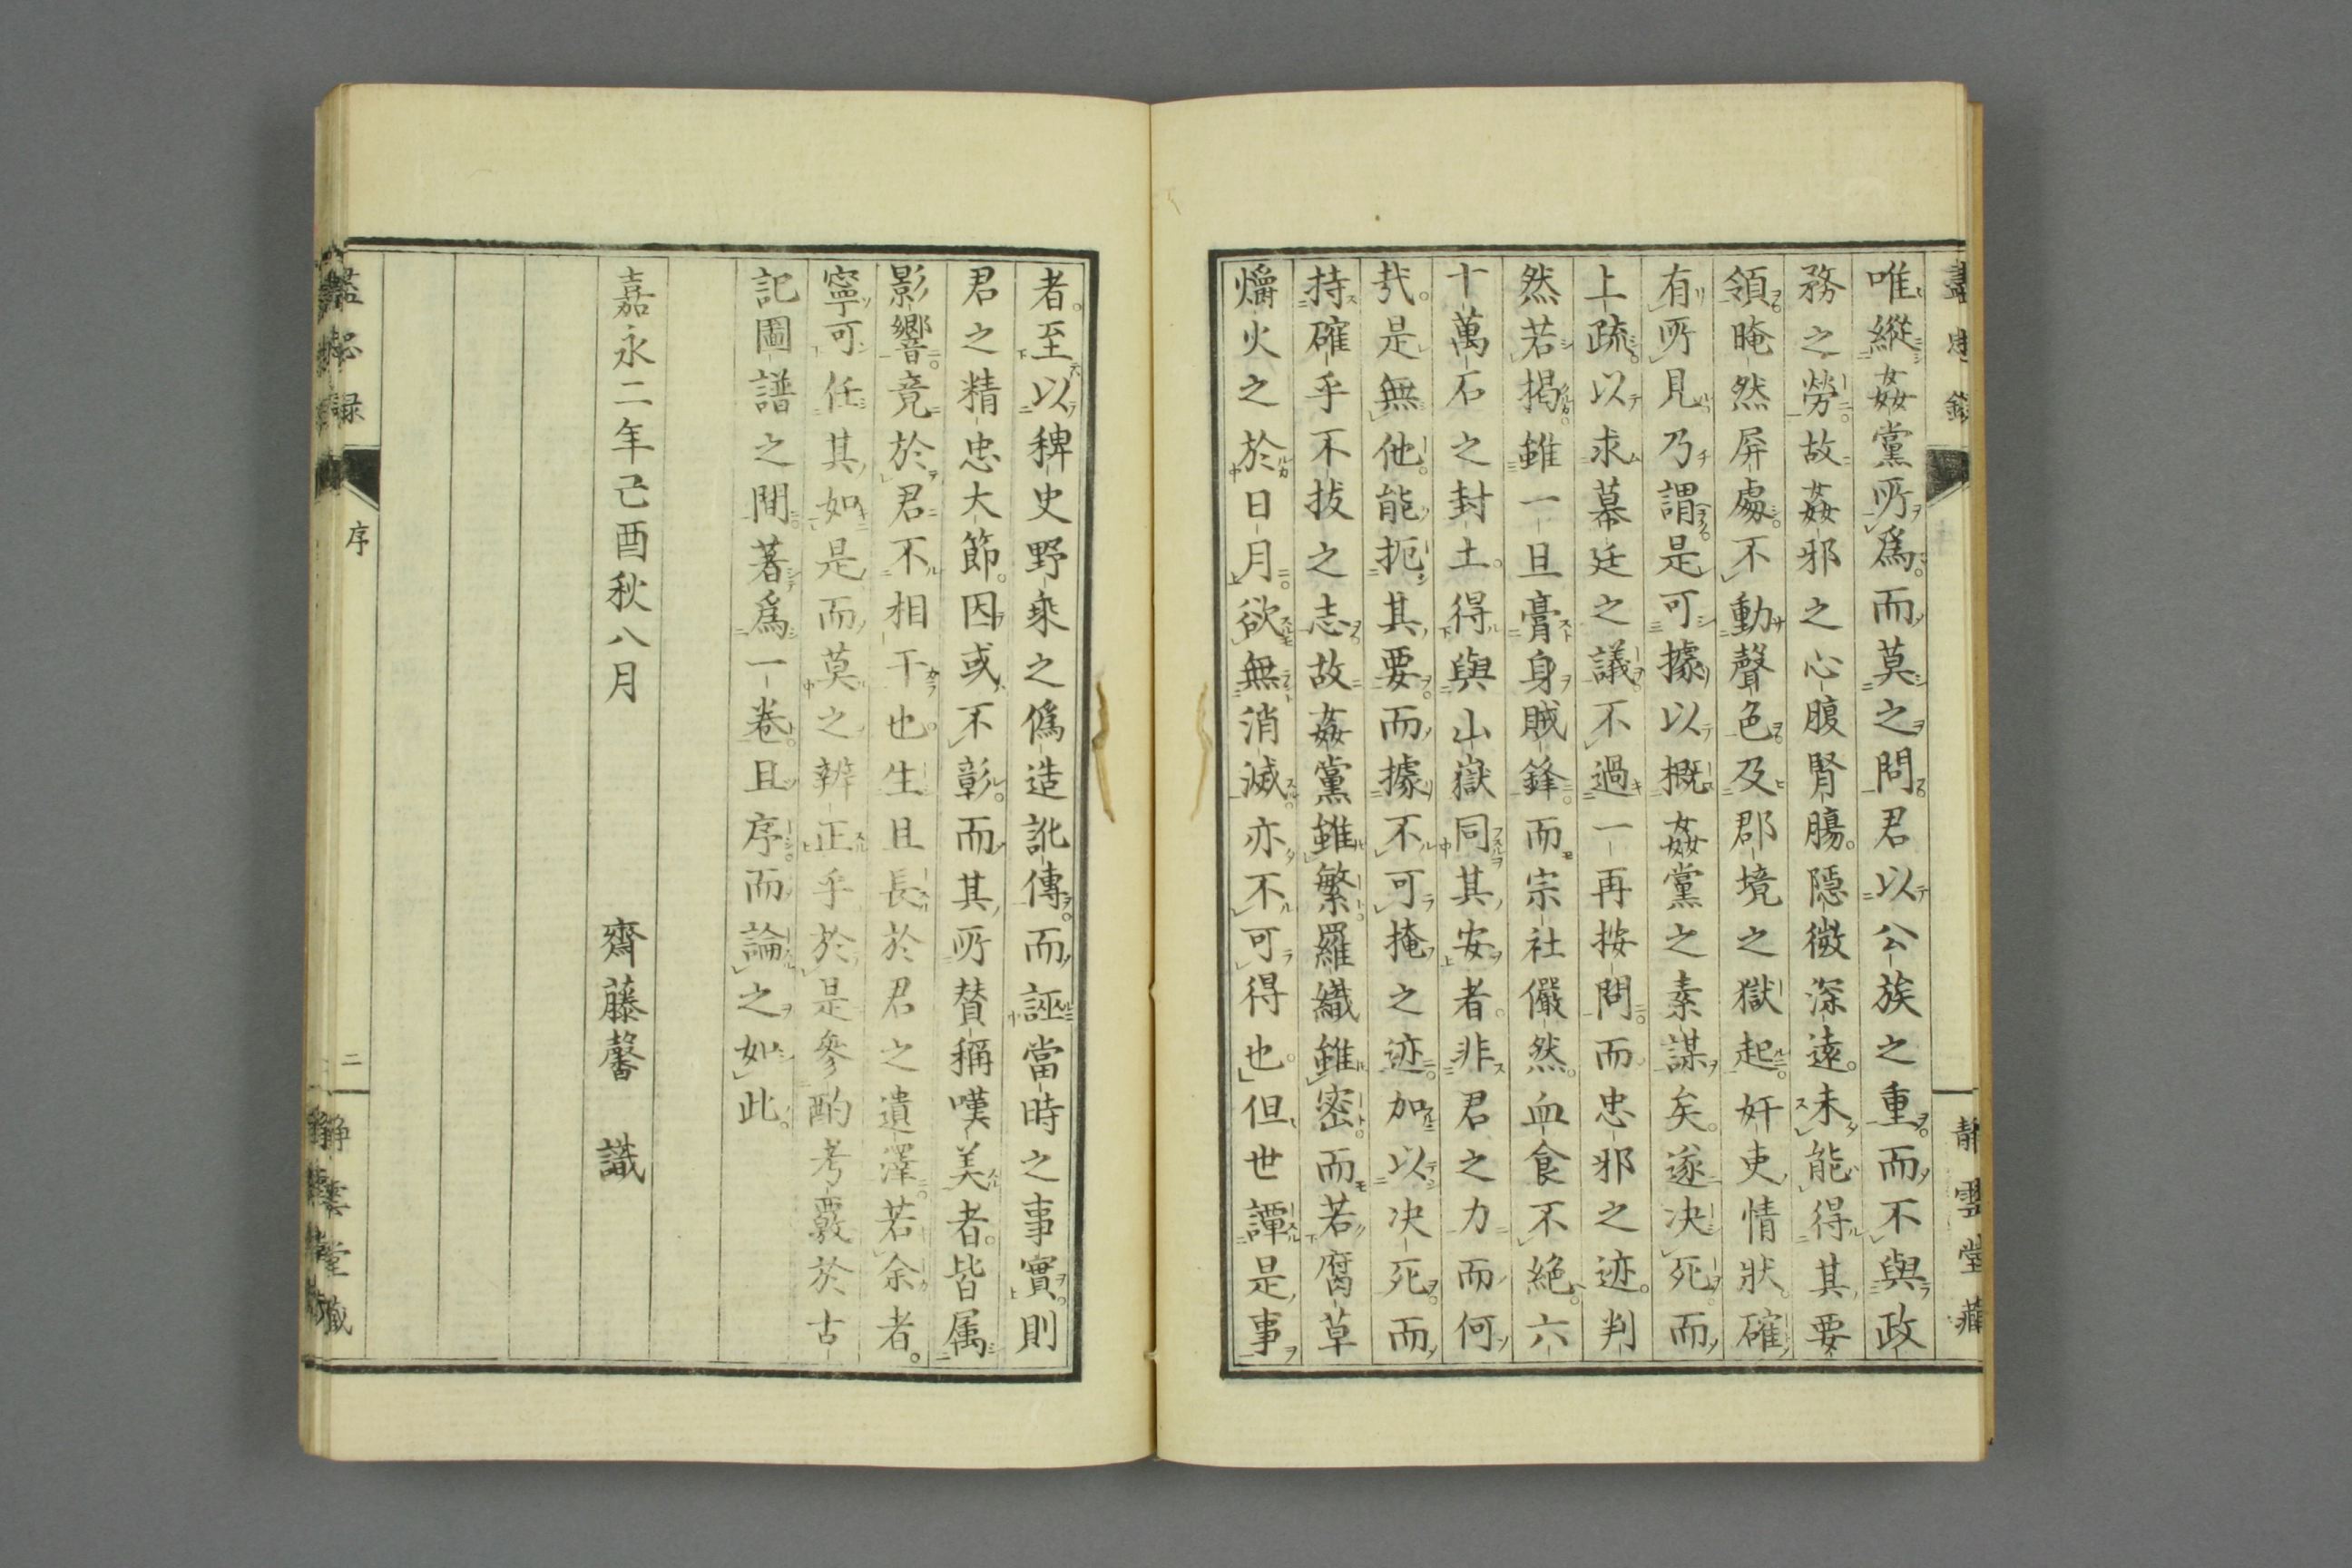 盡忠錄
靜雲堂藏
唯縱姦黨所爲而莫之問君以公族之重而不與政
務之勞故姦邪之心腹腎腸隱微深遠未能得其要
領晻然屏處不動聲色及郡境之獄起奸吏情狀確
有所見乃謂是可據以概姦黨之素謀矣遂决死而
上疏以求幕廷之議不過一再按問而忠邪之迹判
然若揭雖一旦膏身賊鋒而宗社儼然血食不絶六
十萬石之封土得與山嶽同其安者非君之力而何
㢤是無他能扼其要而據不可掩之迹加以决死而
持確乎不拔之志故姦黨雖繁羅織雖密而若腐草
爝火之於日月欲無消滅亦不可得也但世譚是事
者至以稗史野乘之僞造訛傳而誣當時之事實則
君之精忠大節因或不彰而其所賛稱嘆美者皆属
影響竟於君不相干也生且長於君之遺澤若余者
寧可任其如是而莫之辨正乎於是參酌考覈於古
記圖譜之間著爲一卷且序而論之如此
嘉永二年己酉秋八月
齊藤馨 識
序
二